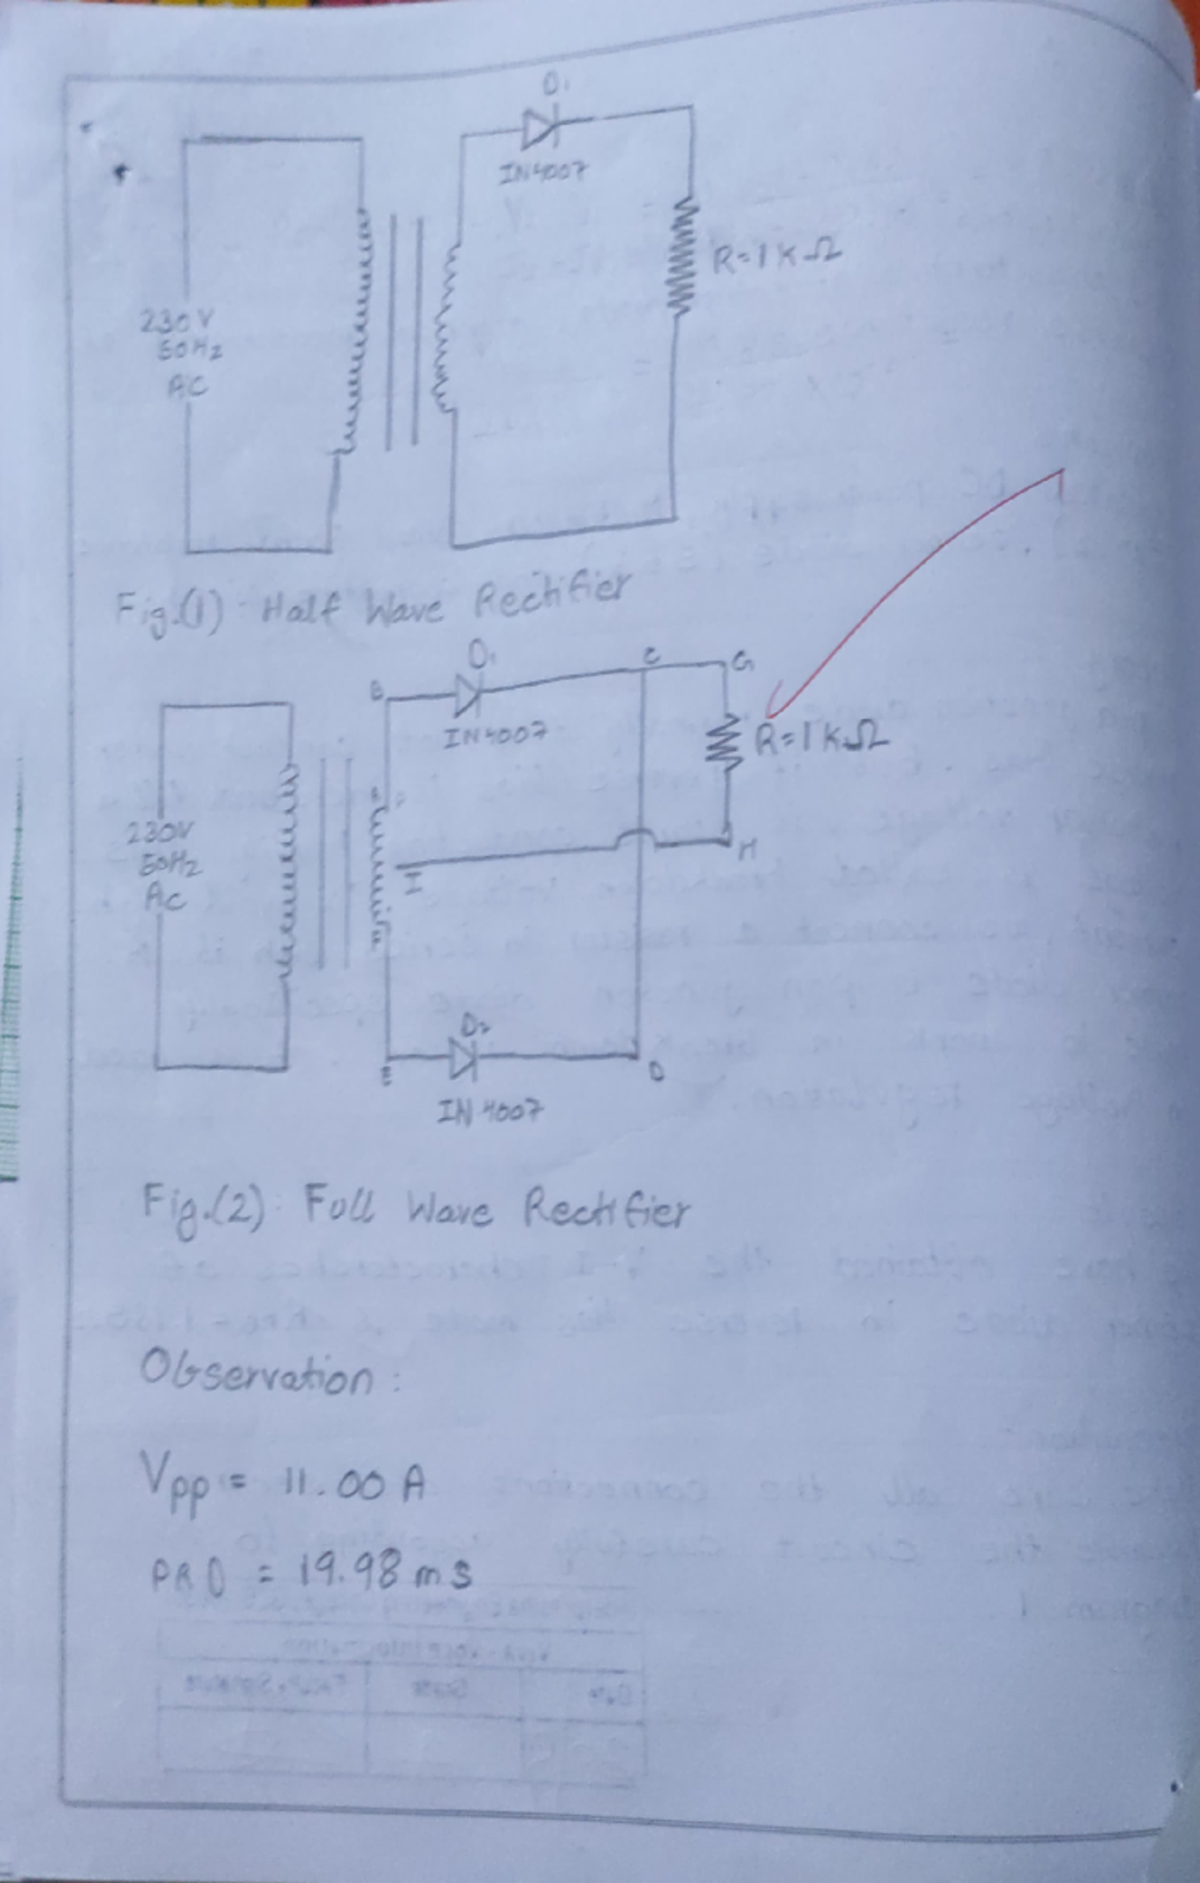 D1
IN4007
R=1KΩ
230V
50Hz
AC
Fig.(1) Half Wave Rectifier
D1
B
C
G
IN4007
R=1KΩ
230V
50Hz
AC
H
D2
E
D
IN4007
Fig.(2) Full Wave Rectifier
Observation:
Vpp = 11.00 A
PRD = 19.98 ms